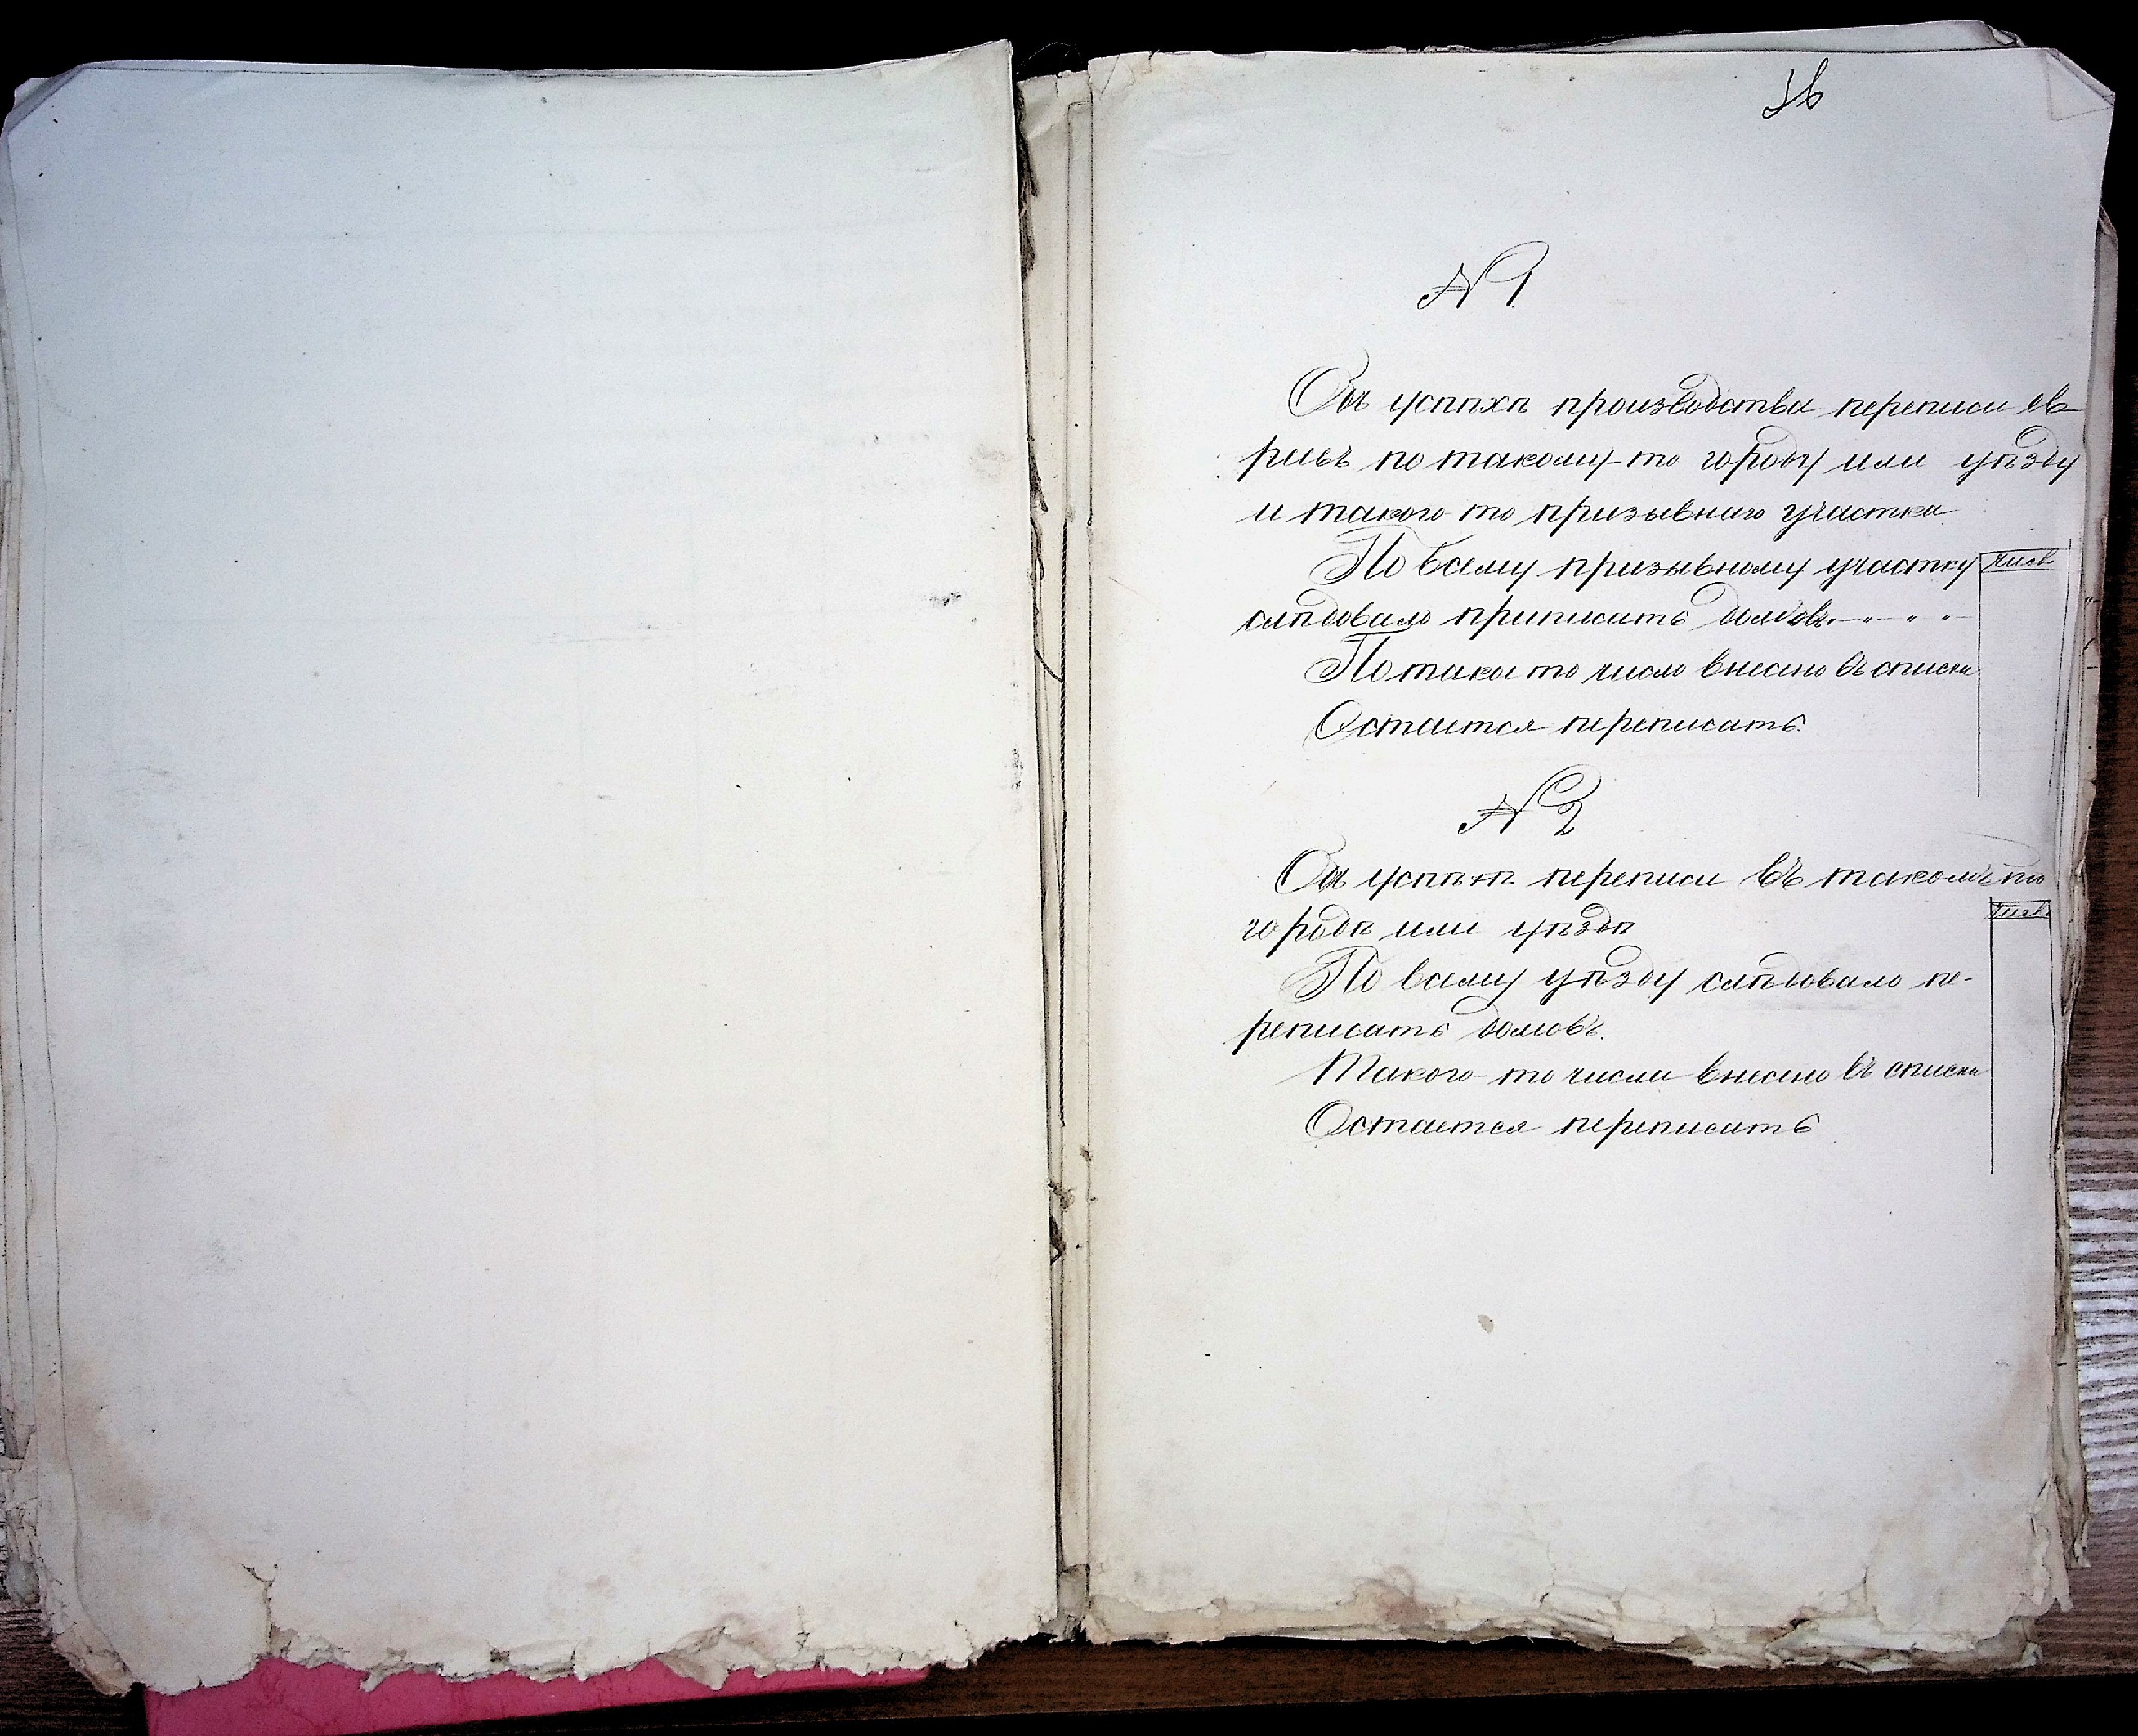 36
№ 1.
Объ успѣхѣ производства переписи ев-
реевъ по такому-то городу или уѣзду
и такого то призывнаго участка
По всему призывному участку
Число
слѣдовало приписать домовъ. — „ — „ — „ —
По такое то число внесено въ списки
Остается переписать.
№ 2
Объ успѣхѣ переписи въ такомъ то
городѣ или уѣздѣ
Число
По всему уѣзду слѣдовало пе-
реписать домовъ.
Такого-то числа внесено въ списки
Остается переписать